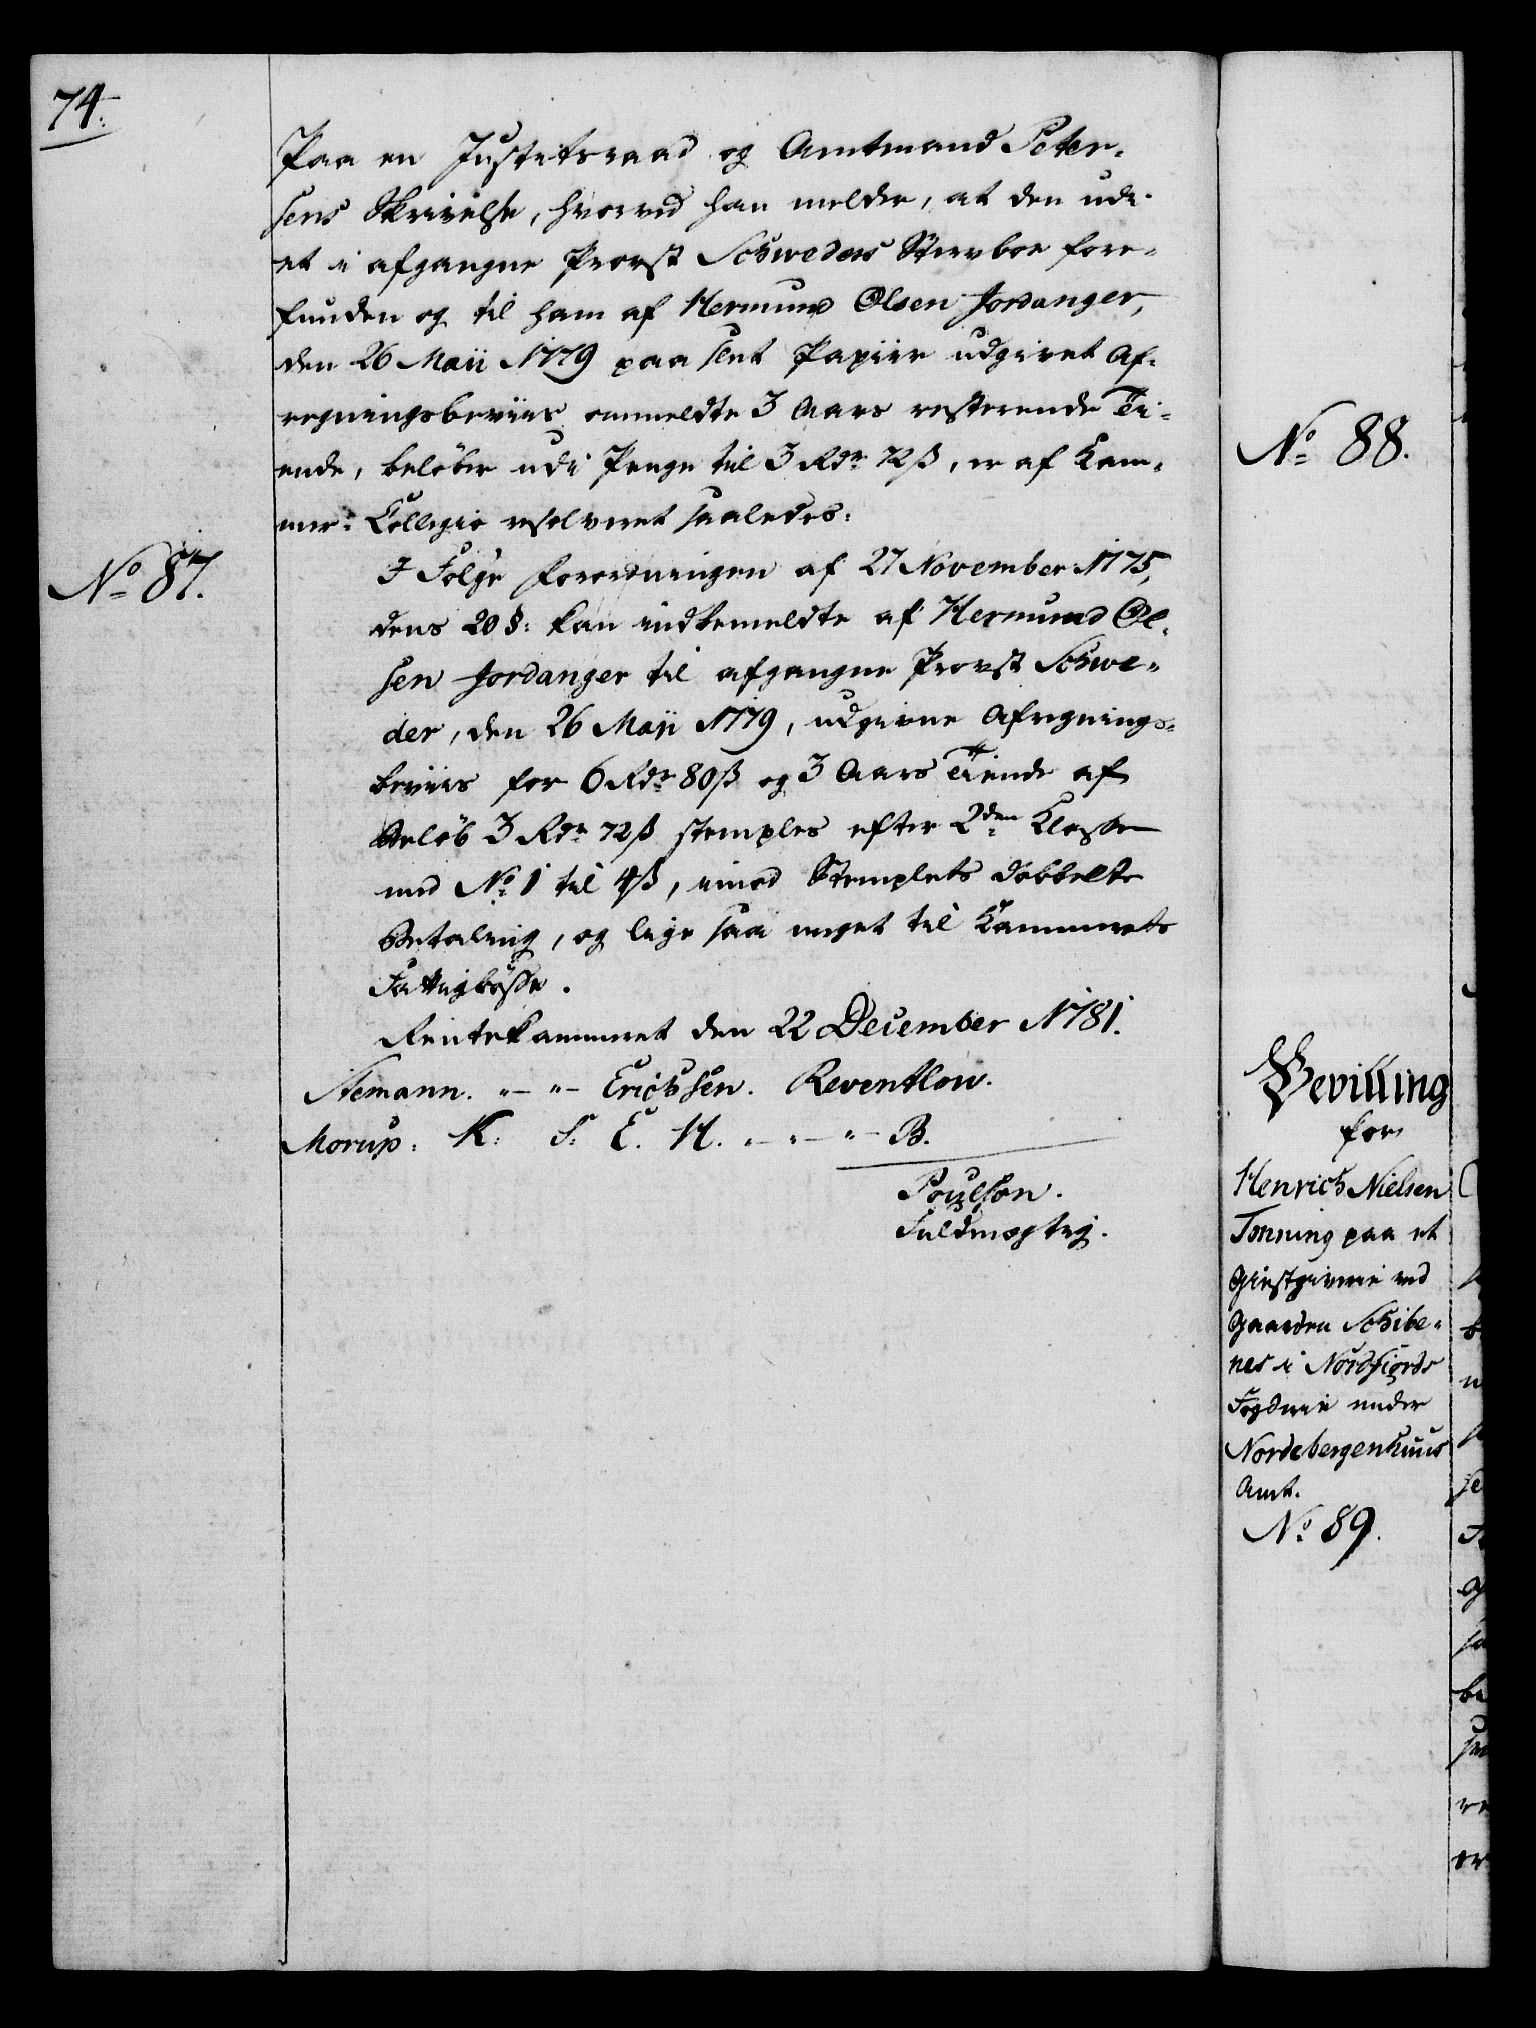 74.
Paa en Justitsraad og Amtmand Peter-
sens Skrivelse, hvorved han melder, at den udi
et i afgangne Provst Schweders Stervboe fore-
funden og til ham af Hermund Olsen Jordanger,
den 26 Maii 1779 paa slet Papiir udgivet Af-
regningsbeviis ommeldte 3 Aars resterende Ti-
ende, beløber udi Penge til 3 Rdr 72 ß, er af Kam-
mer-Collegio resolveret saaledes:
No 87.
I Følge Forordningen af 27 November 1775,
dens 20 §: kan indbemeldte af Hermund Ol-
sen Jordanger til afgangne Provst Schwe-
der, den 26 Maji 1779, udgivne Afregnings-
beviis for 6 Rdr 80 ß og 3 Aars Tiende af
Beløb 3 Rdr 72 ß stemples efter 2den Classe
med No 1 til 4 ß, imod Stemplets dobbelte
Betaling, og lige saa meget til Kammerets
Fattigbøsse.
Rentekammeret den 22 December 1781.
Stemann. "-"- Erichsen. Reventlow.
Morup: K: S: E. H. "-"-"- B.
Poulson.
Fuldmægtig.
No 88.
Bevilling
for
Henrich Nielsen
Tønning paa et
Giestgiverie ved
Gaarden Schibe-
nes i Nordfiords
Fogderie under
Nordrebergenhuus
Amt.
No 89.